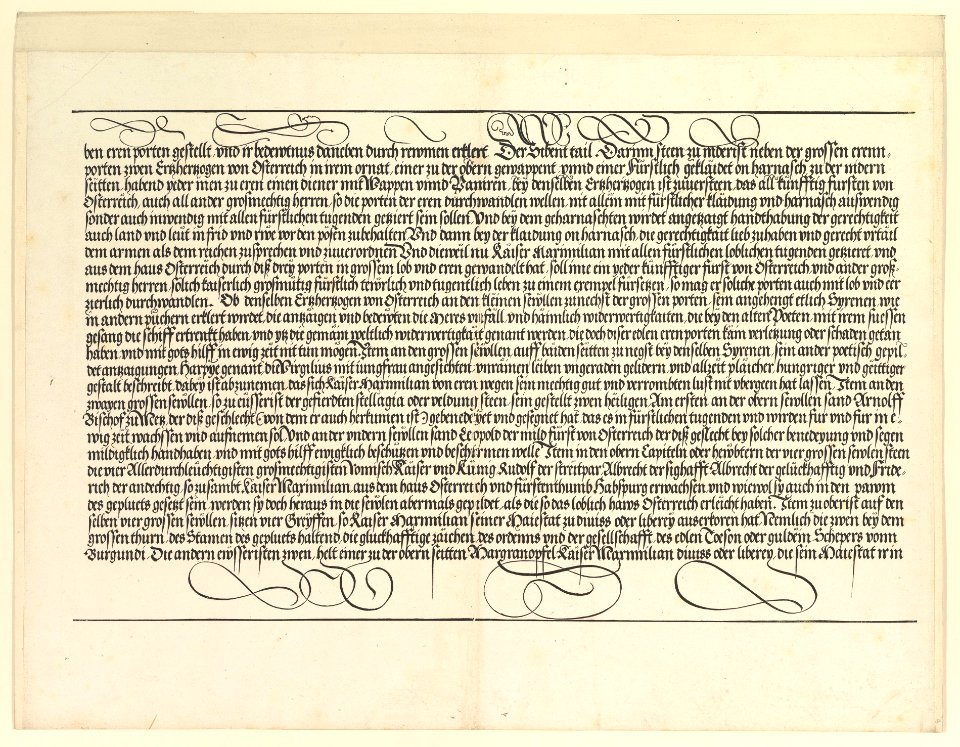 ben eren porten gestellt, vnd ir bedewtnus daneben durch reymen erklert Der Sibent tail. Darinn steen zu inderist neben der grossen erenn-
porten zwen Ertzhertzogen von Osterreich in irem ornat, einer zu der obern gewappent, vnnd einer Fürstlich geklaidet on harnasch zu der indern
seitten, habend yeder inen zu eren einen diener mit Wappen vnnd Baniren, bey denselben Ertzhertzogen ist zuuersteen, das all künfftig fursten von
Osterreich, auch all ander großmechtig herren, so die porten der eren durchwandlen wellen, nit allein mit fürstlicher klaidung vnd harnasch auswendig
sonder auch inwendig mit allen fürstlichen tugenden getziert sein sollen Vnd bey dem geharnaschten wirdet angetzaigt handthabung der gerechtigkeit
auch land vnd leut in frid vnd rwe vor den pösen zubehalten Vnd dann bey der klaidung on harnasch, die gerechtigkeit lieb zuhaben vnd gerecht vrtail
dem armen als dem reichen zusprechen vnd zuuerordnen Vnd dieweil nu Kaiser Maximilian mit allen fürstlichen loblichen tugenden getzieret, vnd
aus dem haus Osterreich durch diß drey porten in grossem lob vnd eren gewandelt hat, soll ime ein yeder künfftiger furst von Osterreich vnd ander groß-
mechtig herren, solich kaiserlich großmütig fürstlich teworlich vnd tugentlich leben zu einem exempel fürsetzen, so mag er soliche porten auch mit lob vnd eer
zierlich durchwandlen. Ob denselben Ertzhertzogen von Osterreich an den kleinen sewllen zunechst der grossen porten, sein angehengt etlich Syrenen wie
in andern püchern erklert wirdet, die antzaigen vnd bedewten die Meres vnfall, vnd haimlich widerwertigkaiten, die bey den alten Poeten, mit irem suessen
gesang die schiff ertrenkt haben, vnd ytz die gemain weltlich widerwertigkait genant werden, die doch diser edlen eren porten kain verletzung oder schaden getan
haben, vnd mit gots hilff in ewig zeit nit tun mögen Item an den grossen sewllen auff baiden seitten zu negst bey denselben Syrenen, sein ander poetisch gepil-
det antzaigungen Harpye genant, die Virgilius mit iungfraw angesichten, vnrainen leiben vngeraden gelidern, vnd allzeit plaicher, hungriger vnd geittiger
gestalt beschreibt, dabey ist abzunemen, das sich Kaiser Maximilian von eren wegen sein mechtig gut vnd verrombten lust nit vbergeen hat lassen Item an den
zwayen grossen sewllen, so zu eusserist der gefierdten stellagia oder veldung steen, sein gestellt zwen heiligen Am ersten an der obern sewllen sand Arnolff
Bischof zu Metz, der diß geschlecht (von dem er auch herkumen ist) gebenedeyet vnd gesegnet hat, das es in fürstlichen tugenden vnd wirden, fur vnd fur in e-
wig zeit wachssen vnd aufnemen sol Vnd an der vndern sewllen sand Leopold der mild fürst von Osterreich der diß geslecht bey solcher benedeyung vnd segen
mildigklich handhaben, vnd mit gots hilff ewigklich beschützen vnd beschirmen welle Item in den obern Capiteln oder hewbtern der vier grossen sewlen steen
die vier Allerdurchleuchtigisten großmechtigisten Romisch Kaiser vnd Kunig Rudolf der streitpar Albrecht der sighafft Albrecht der gelückhafftig vnd Fride-
rich der andechtig, so zusambt Kaiser Maximilian, aus dem haus Osterreich vnd fürstenthumb Habspurg erwachsen, vnd wiewol sy auch in den pawm
des gepluets gesetzt sein, werden sy doch heraus in die sewlen abermals gepildet, als die so das loblich haws Osterreich erleucht haben. Item zu oberist auf den
selben vier grossen sewllen, sitzen vier Greyffen, so Kaiser Maximilian seiner Maiestat zu diuiss oder liberey auserkoren hat Nemlich die zwen bey dem
grossen thurn, des Stamen des gepluets haltend, die gluckhafftige zaichen, des ordenns vnd der gesellschafft, des edlen Toeson oder guldein Schepers vonn
Burgundi. Die andern eüsseristen zwen, helt einer zu der obern seitten Margranopfel Kaiser Maximilian diuiss oder liberey, die sein Maiestat ir in